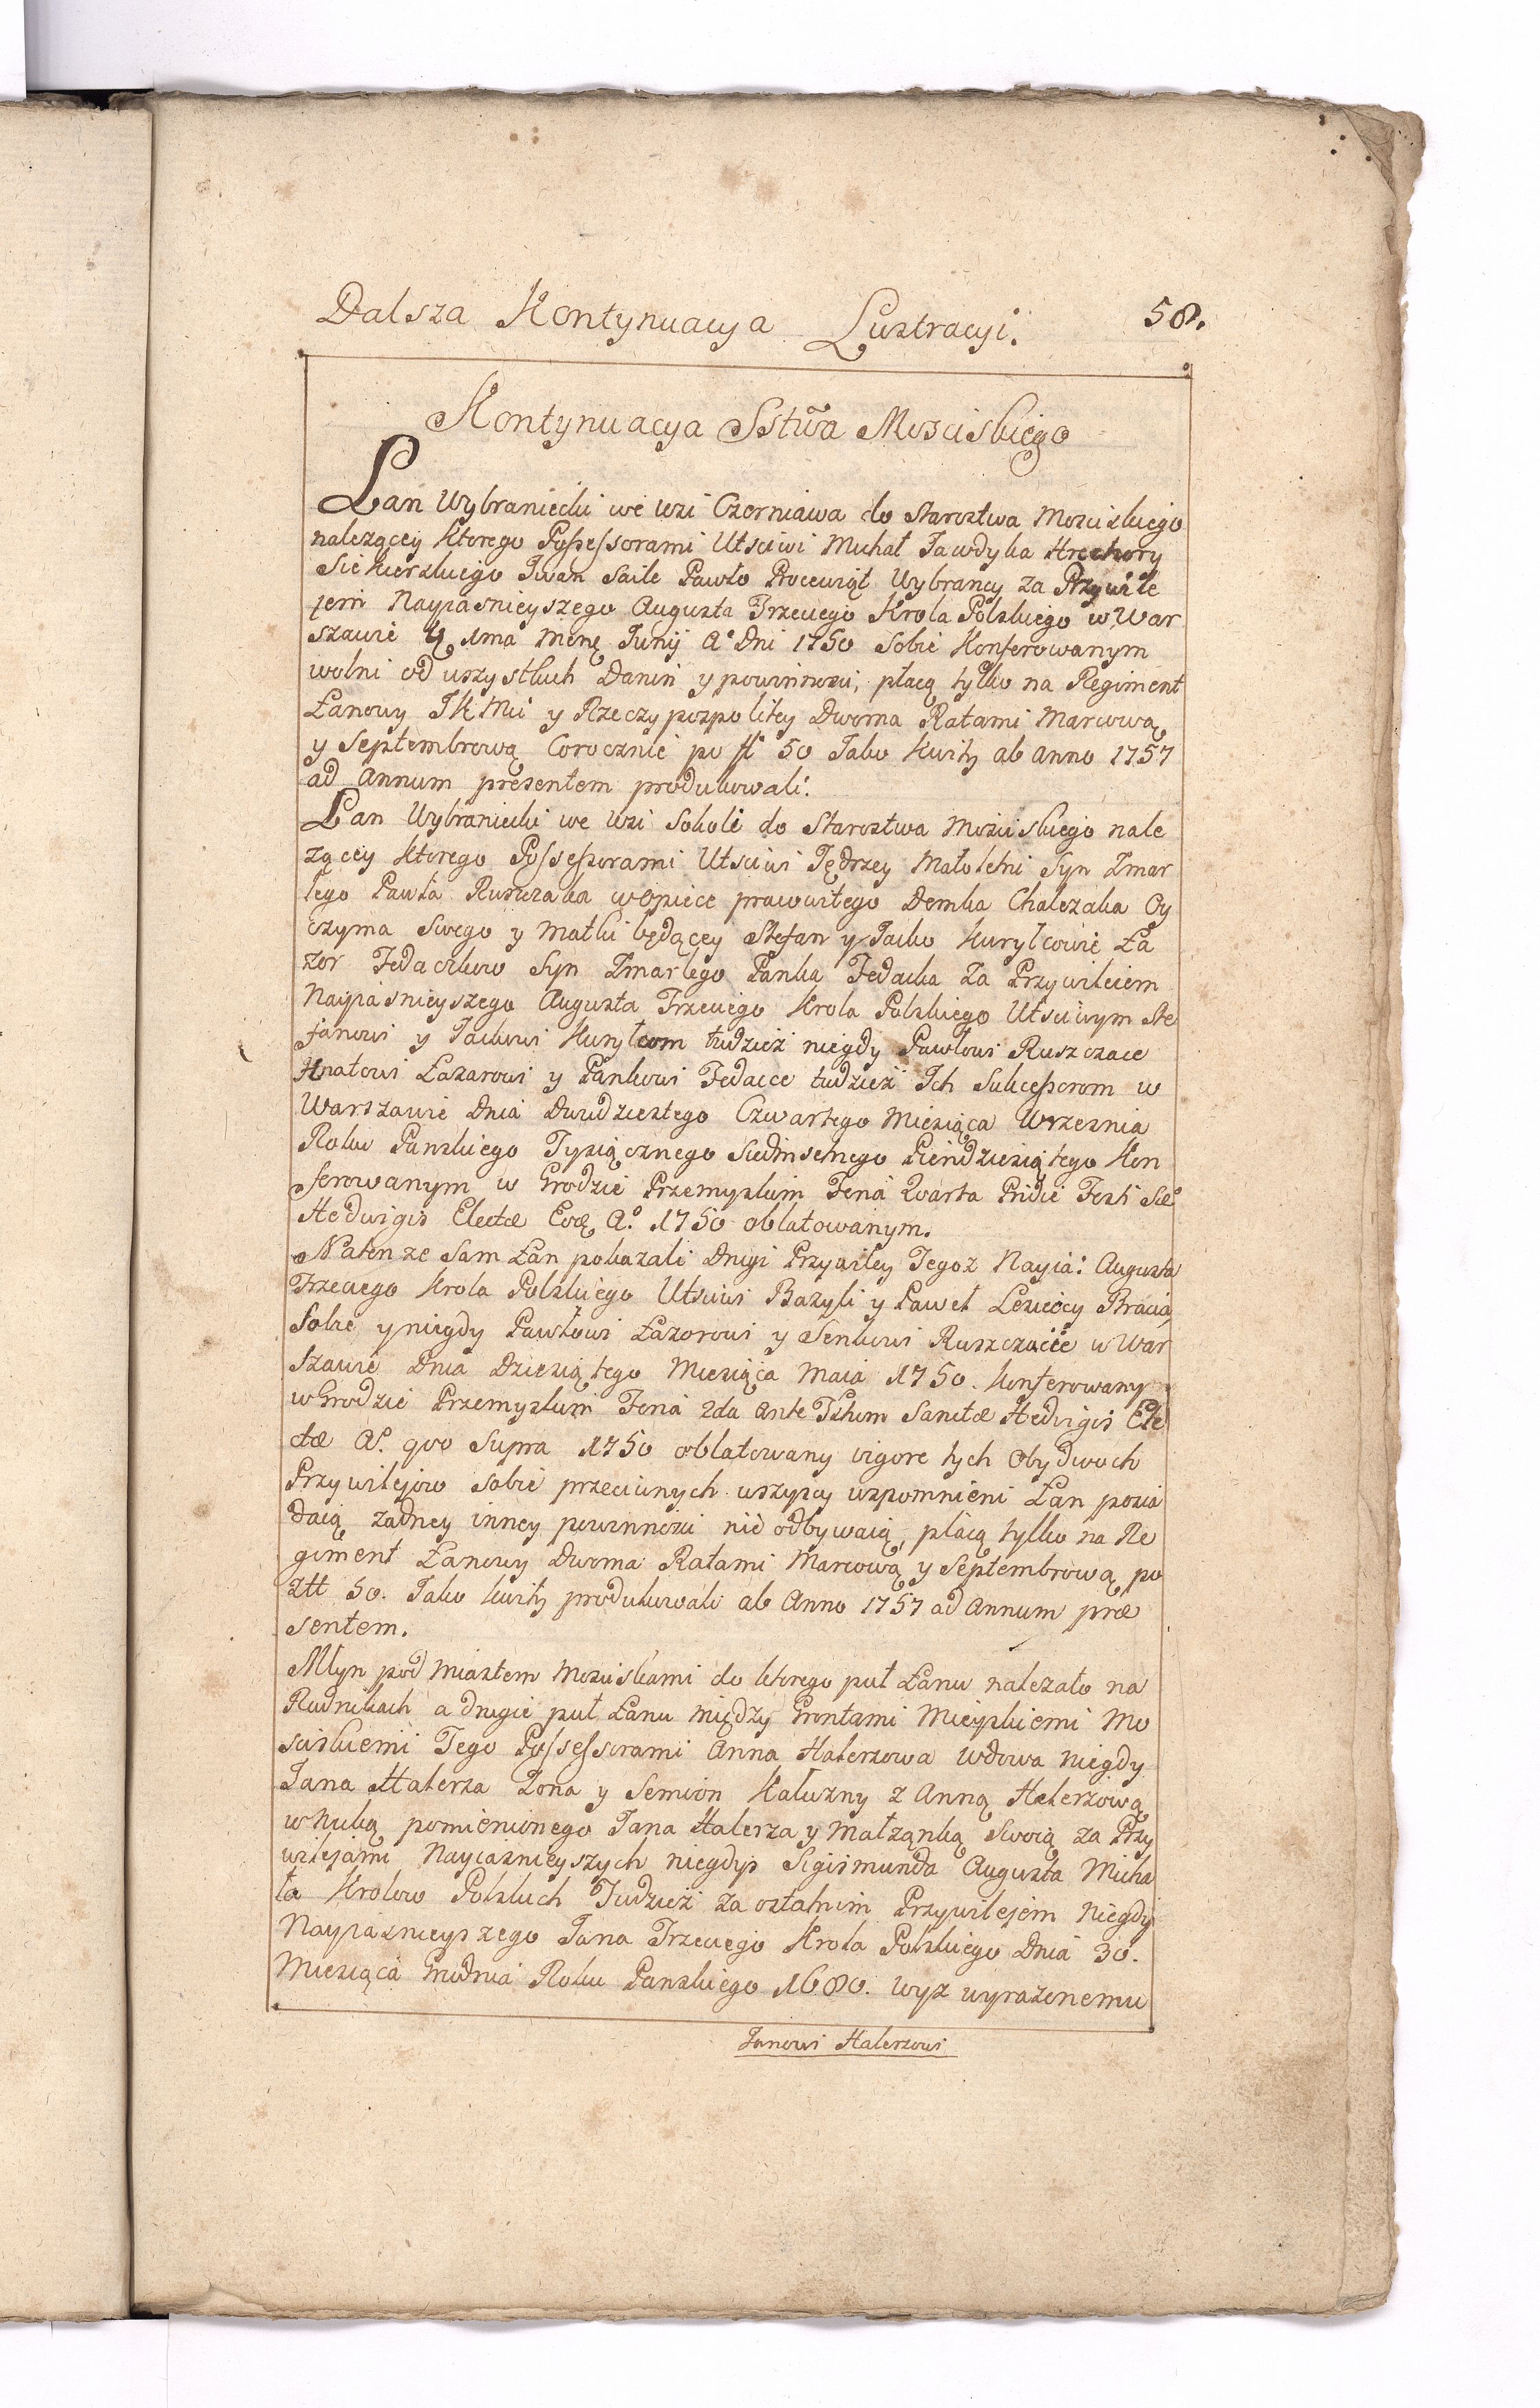 Dalsza Kontynuacya Lustracyi. 58.
Kontynuacya Sstwa Mosciskiego
Łan Wybraniecki we wsi Czerniawa do Starostwa Mosciskiego
nalezącey ktorego Possessorami Utsciwi Michał Jawdyka Hrehory
Siekierskiego Iwan Saile Pawło Procewiąt Wybrancy za Przywile
jem Nayiasnieyszego Augusta Trzeciego Krola Polskiego w War
szawie 1ma Menę Junij A° Dni 1750 Sobie Konferowanym
wolni od wszystkich Danin y powinnosci, płacą tylko na Regiment
Łanowy JKMci y Rzeczypospolitey Dwoma Ratami Marcową
y Septembrową Corocznie po fl 50 Jako kwity ab anno 1757
ad Annum presentem produkowali.
Łan Wybraniecki we wsi Sokoli do Starostwa Mosciskiego nale
zącey ktorego Possessorami Utsciwi Jędrzey Małoletni Syn Zmar
łego Pawła Ruszczaka w Opiece prawuitego Demka Chalczaka Oy
czyma Swego y Matki będącey Stefan y Jacko Kuryłcowie Ła
zor Fedaczkow Syn Zmarłego Panka Fedacka Za Przywileiem
Nayiasnieyszego Augusta Trzeciego Krola Polskiego Utsciwym Ste
fanowi y Jackowi Kuryłcom tudziesz niegdy Pawłowi Ruszczace
Hnatowi Łazarowi y Pankowi Fedacce tudziesz Ich Sukcessorom w
Warszawie Dnia Dwudziestego Czwartego Miesiąca Wrzesnia
Roku Panskiego Tysiącznego Siedmsetnego Piendziesiątego Kon
ferowanym w Grodzie Przemyslkim Feria Quarta Pridie Festi Sæ
Hedwigis Electæ A° 1750 oblatowanym.
Naten ze Sam Łan pokazali Drugi Przywiley Tegoz Nayia: Augusta
Trzeciego Krola Polskiego Utsciwi Bazyli y Paweł Leziccy Bracia,
Sobie y niegdy Pawłowi Łazorowi y Senkowi Ruszczacie w War
szawie Dnia Dziesiątego Miesiąca Maia 1750. konferowany
w Grodzie Przemyslkim Feria 2da ante Fstum Sanctæ Hedwigis Ele
ctæ A° quo Supra 1750 oblatowany vigore tych Obydwoch
Przywilejow Sobie przeciwnych wszyscy wspomnieni Łan posia
daią zadney inney powinnosci nie odbywaią, płacą tylko na Re
giment Łanowy Dwoma Ratami Marcową y Septembrową po
złł 50. Jako kwity produkowali ab Anno 1757 ad Annum præ
sentem.
Młyn pod Miastem Mosciskami do ktorego puł Łanu nalezało na
Rudnikach a drugie puł Łanu między Grontami Mieyskiemi Mo
sciskiemi Tego Possessorami Anna Halerzowa wdowa niegdy
Jana Halerza Zona y Semion Kałuzny z Anną Halerzową
wnuką pomienionego Jana Halerza y Małząnką Swoią za Przy
wilejami Nayiasnieyszych niegdys Sigismunda Augusta Micha
ła Krolow Polskich Tudziesz za ostatnim Przywilejem niegdy
Nayiasnieyszego Jana Trzeciego Krola Polskiego Dnia 30.
Miesiąca Grudnia Roku Panskiego 1680. wysz wyrazonemu
Janowi Halerzowi